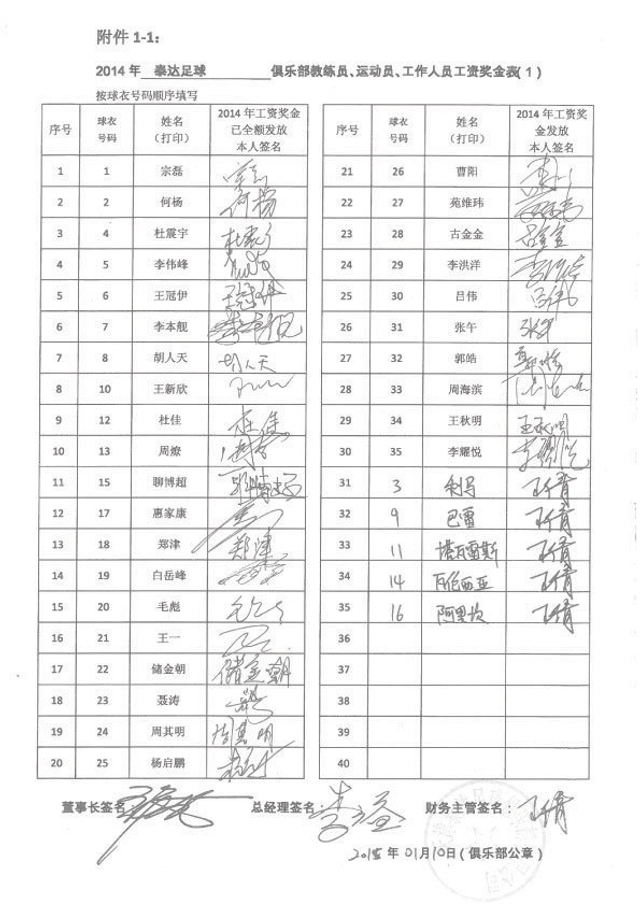 附件 1-1:
2014 年 泰达足球 俱乐部教练员、运动员、工作人员工资奖金表(1)
按球衣号码顺序填写
序号 球衣号码 姓名（打印） 2014 年工资奖金已全额发放本人签名
1 1 宗磊
2 2 何杨 何杨
3 4 杜震宇 杜震宇
4 5 李伟峰
5 6 王冠伊 王冠伊
6 7 李本舰 李本舰
7 8 胡人天 胡人天
8 10 王新欣
9 12 杜佳 杜佳
10 13 周燎
11 15 聊博超
12 17 惠家康
13 18 郑津 郑津
14 19 白岳峰
15 20 毛彪
16 21 王一
17 22 储金朝 储金朝
18 23 聂涛
19 24 周其明 周其明
20 25 杨启鹏
序号 球衣号码 姓名（打印） 2014 年工资奖金发放本人签名
21 26 曹阳
22 27 苑维玮
23 28 古金金 古金金
24 29 李洪洋
25 30 吕伟 吕伟
26 31 张午
27 32 郭皓
28 33 周海滨
29 34 王秋明 王秋明
30 35 李耀悦
31 3 利马
32 9 巴雷
33 11 塔瓦雷斯
34 14 瓦伦西亚
35 16 阿里坎
36
37
38
39
40
董事长签名： 总经理签名： 财务主管签名：
2015 年 01月10日（俱乐部公章）